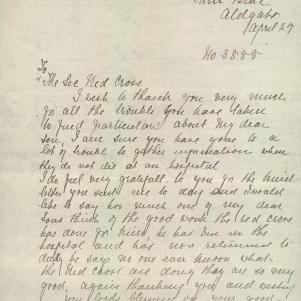 Aldgate
April 27
No 3888
To
The Sec Red Cross
I wish to thank you very much
for all the trouble you have taken
to find particulars about my dear
son I am sure you have gone to a
lot of trouble to gather information when
they do not die at an hospital
I do feel very gratefull to you for the kind
letter you sent me to day and I would
like to say how much one of my dear
sons thinks of the good work the red cross
has done for him, he has been in the
hospital and has now returned to
duty he says no one ever knows what
the Red Cross are doing they are so very
good, again thanking you and wishing
you Gods blessing on your good